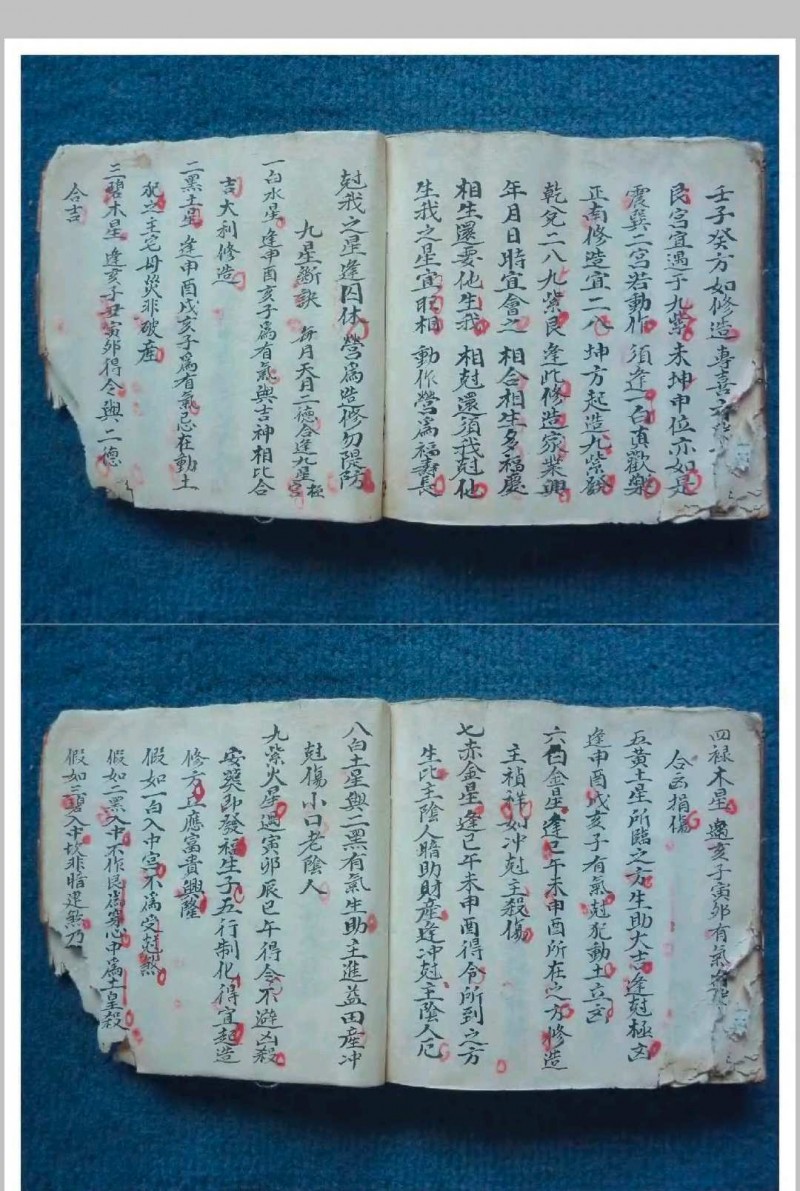 壬子癸方如修造 專喜
艮宮宜遇于九紫 未坤申位亦如是
震巽二宮若動作 須逢一白真歡樂
正南修造宜二八 坤方起造九紫說
乾兌二八九紫良 逢此修造家業興
年月日時宜會之 相合相生多福慶
相生還要他生我 相尅還須我尅他
生我之星宜旺相 動作營為福壽長
尅我之星逢囚休 營為造修勿隄防
九星斷訣 每月天月二德合逢九星極宮
一白水星 逢申酉亥子為有氣與吉神相比合
吉大利修造
二黑土星 逢申酉戌亥子為有氣忌在動土
犯之主宅母災非破産
三碧木星 逢亥子丑寅卯得令與二德
合吉
四祿木星 遇亥子寅卯有氣
合凶損傷
五黃土星所臨之方生助大吉逢尅極凶
逢申酉戌亥子有氣尅犯動土立凶
六白金星逢巳午未申酉所在之方修造
主禎祥如冲尅主殺傷
七赤金星逢巳午未申酉得令所到之方
生比主陰人暗助財產逢冲尅主陰人厄
八白土星與二黑有氣生助主進益田產冲
尅傷小口老陰人
九紫火星遇寅卯辰巳午得令不避凶殺
安葬即發福生子五行制化得宜起造
修方正應富貴興隆
假如一白入中宮不為受尅煞
假如二黑入中不作艮 中為土皇殺
假如三碧入中坎非暗建煞乃